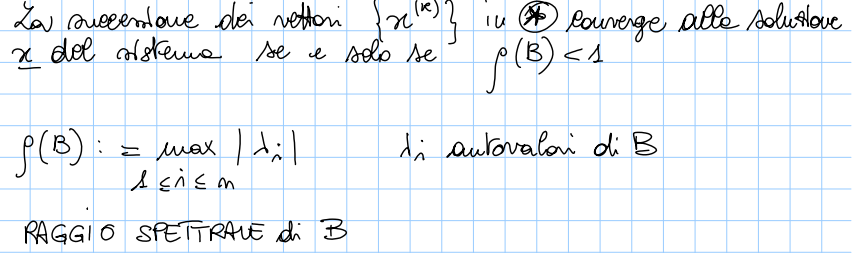 La successione dei vettori {x^(k)} in ⊛ converge alla soluzione
x del sistema se e solo se ρ(B) < 1
ρ(B) := max |λi| λi autovalori di B
1 ≤ i ≤ n
RAGGIO SPETTRALE di B